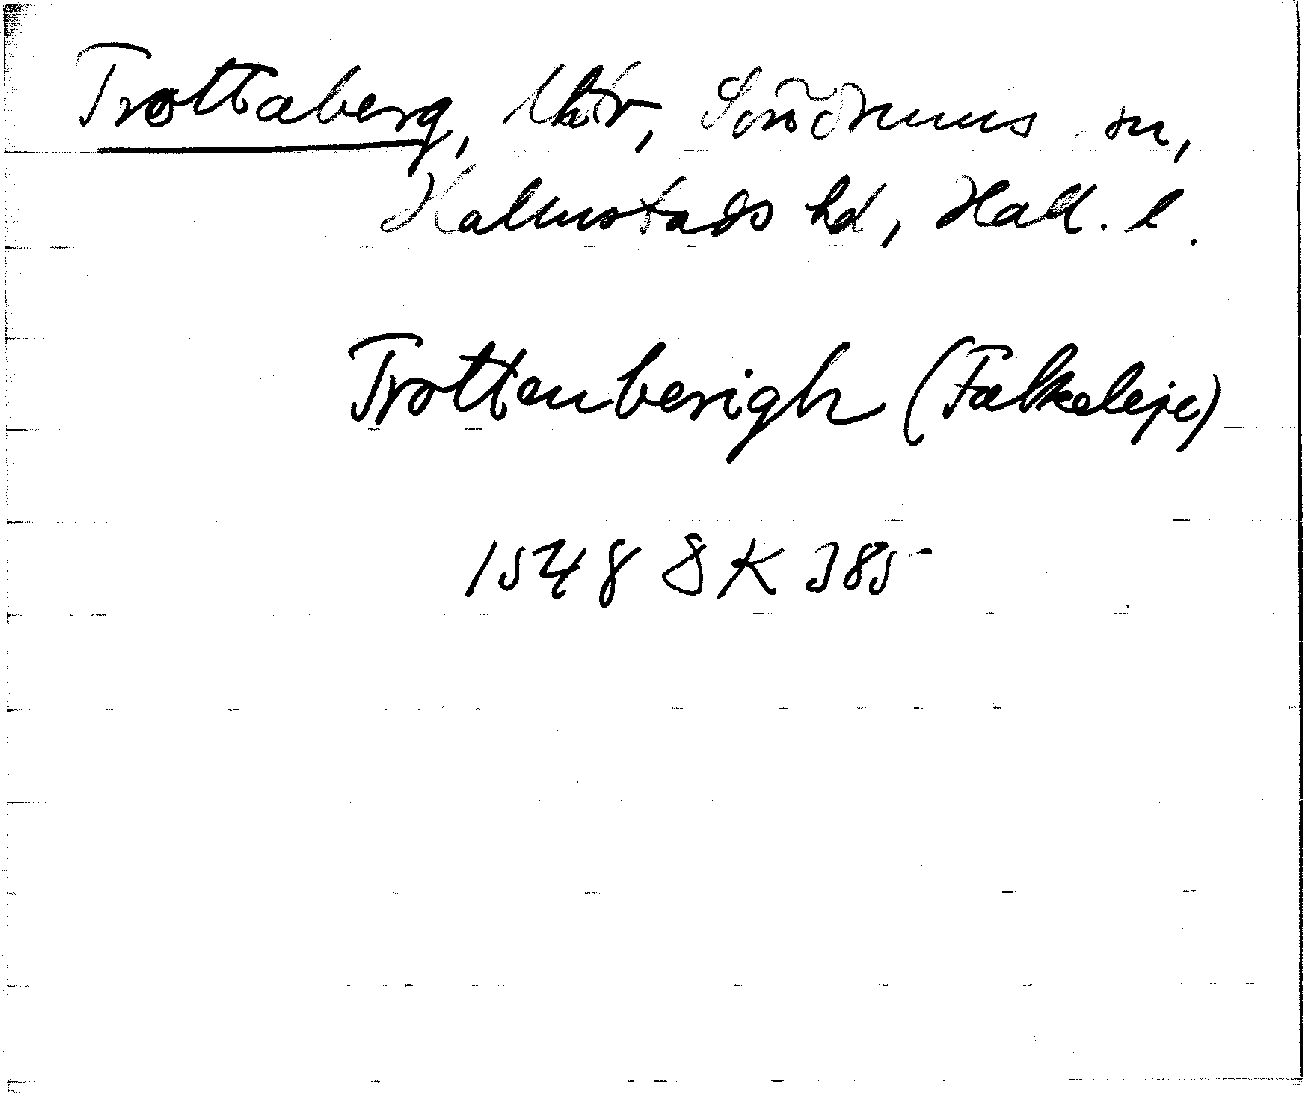 Trottaberg, Söndrums sn,
Halmstads hd, Hall. l.
Trottenberigh (Falkeleje)
1548 SK 385